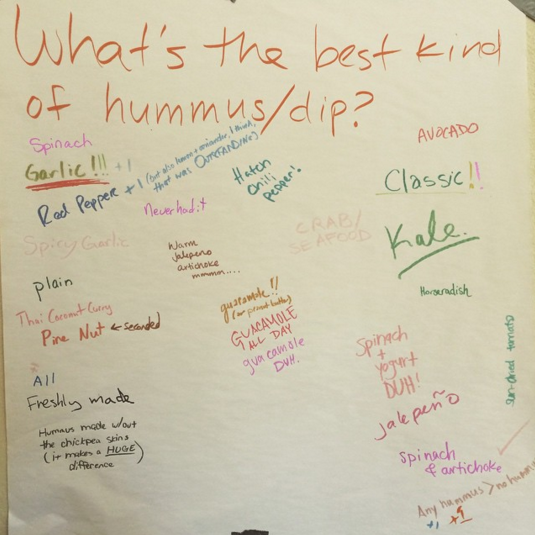 What's the best kind
of hummus/dip?
Spinach
Garlic!!! +1
Red Pepper +1 (but also lemon + coriander, I think,
that was OUTSTANDING)
Never had it
Spicy Garlic
plain
Thai Coconut Curry
Pine Nut ← seconded
All
Freshly made
Hummus made w/out
the chickpea skins
(it makes a HUGE)
difference
Hatch
Chili
pepper!
Warm
jalepeño
artichoke
mmmm....
CRAB/
SEAFOOD
guacamole!!
(or peanut butter)
GUACAMOLE
ALL DAY
guacamole
DUH.
AVOCADO
Classic!!
Kale.
Horseradish
Spinach
+
yogurt
DUH!
jalepeño
sun-dried tomato
spinach
& artichoke
Any hummus > no hummus
+1 +1